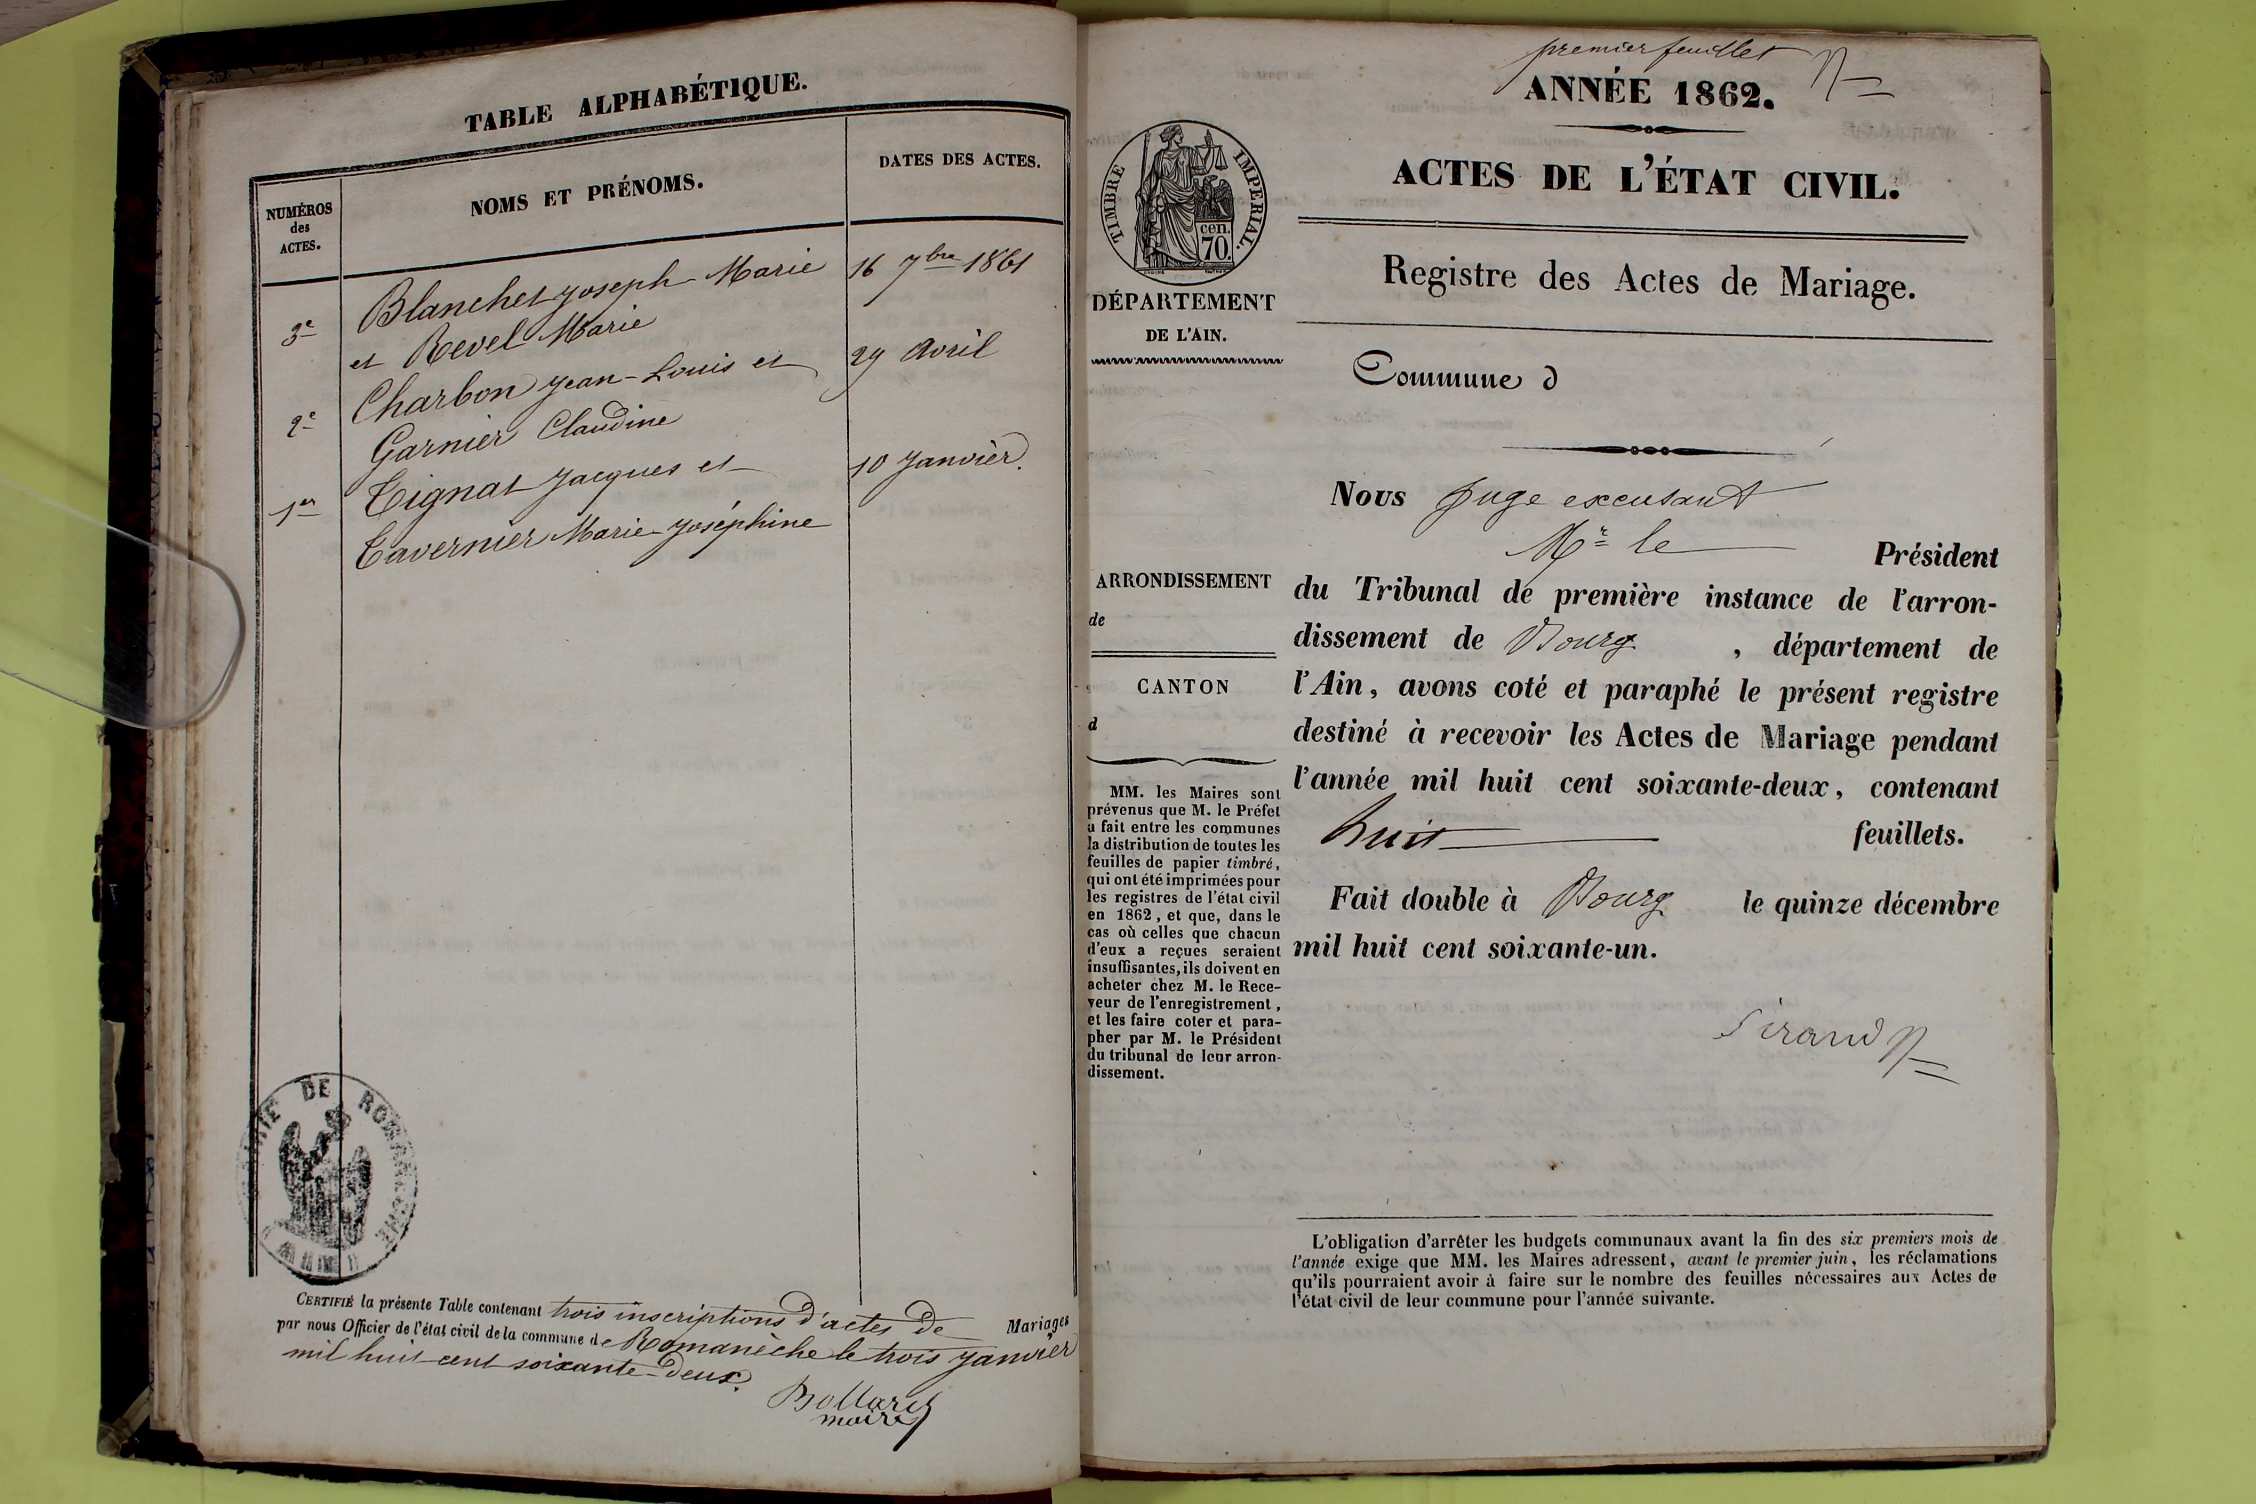 TABLE ALPHABÉTIQUE.
NUMÉROS
des
ACTES.
NOMS ET PRÉNOMS.
DATES DES ACTES.
3e Blanchet Joseph-Marie 16 7bre 1861
et Revel Marie
2e Charbon Jean-Louis et 29 Avril
Garnier Claudine
1er Tignat Jacques et 10 Janvier.
Tavernier Marie-Joséphine
DE ROMANECHE
CERTIFIÉ la présente Table contenant trois inscriptions d'actes de Mariages
par nous Officier de l'état civil de la commune de Romanèche le trois Janvier
mil huit cent soixante-deux.
maire
premier feuillet
ANNÉE 1862.
ACTES DE L'ÉTAT CIVIL.
Registre des Actes de Mariage.
TIMBRE IMPERIAL.
cen.
70.
DÉPARTEMENT
DE L'AIN.
Commune d
Nous Juge excusant
Mr le Président
du Tribunal de première instance de l'arron-
dissement de Bourg, département de
l'Ain, avons coté et paraphé le présent registre
destiné à recevoir les Actes de Mariage pendant
l'année mil huit cent soixante-deux, contenant
huit feuillets.
Fait double à Bourg le quinze décembre
mil huit cent soixante-un.
Sirand
ARRONDISSEMENT
de
CANTON
d
MM. les Maires sont
prévenus que M. le Préfet
a fait entre les communes
la distribution de toutes les
feuilles de papier timbré,
qui ont été imprimées pour
les registres de l'état civil
en 1862, et que, dans le
cas où celles que chacun
d'eux a reçues seraient
insuffisantes, ils doivent en
acheter chez M. le Rece-
veur de l'enregistrement,
et les faire coter et para-
pher par M. le Président
du tribunal de leur arron-
dissement.
L'obligation d'arrêter les budgets communaux avant la fin des six premiers mois de
l'année exige que MM. les Maires adressent, avant le premier juin, les réclamations
qu'ils pourraient avoir à faire sur le nombre des feuilles nécessaires aux Actes de
l'état civil de leur commune pour l'année suivante.